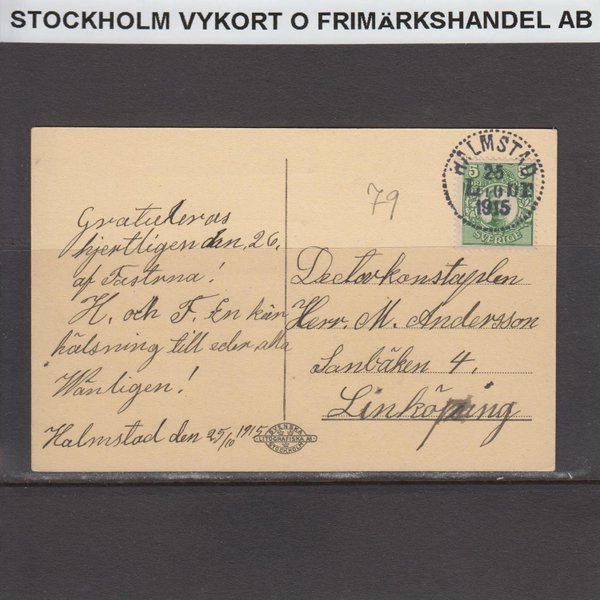 STOCKHOLM VYKORT O FRIMÄRKSHANDEL AB
HALMSTAD
25
10
1915
5 5
SVERIGE
79
Gratuleras
hjertligen den 26.
af Fastrna!
H. och F. En kär
hälsning till eder alla
Wänligen!
Halmstad den 25/10 1915
Herr. M. Andersson
Sanbäken 4.
Linköping
SVENSKA
LITOGRAFISKA AB
STOCKHOLM